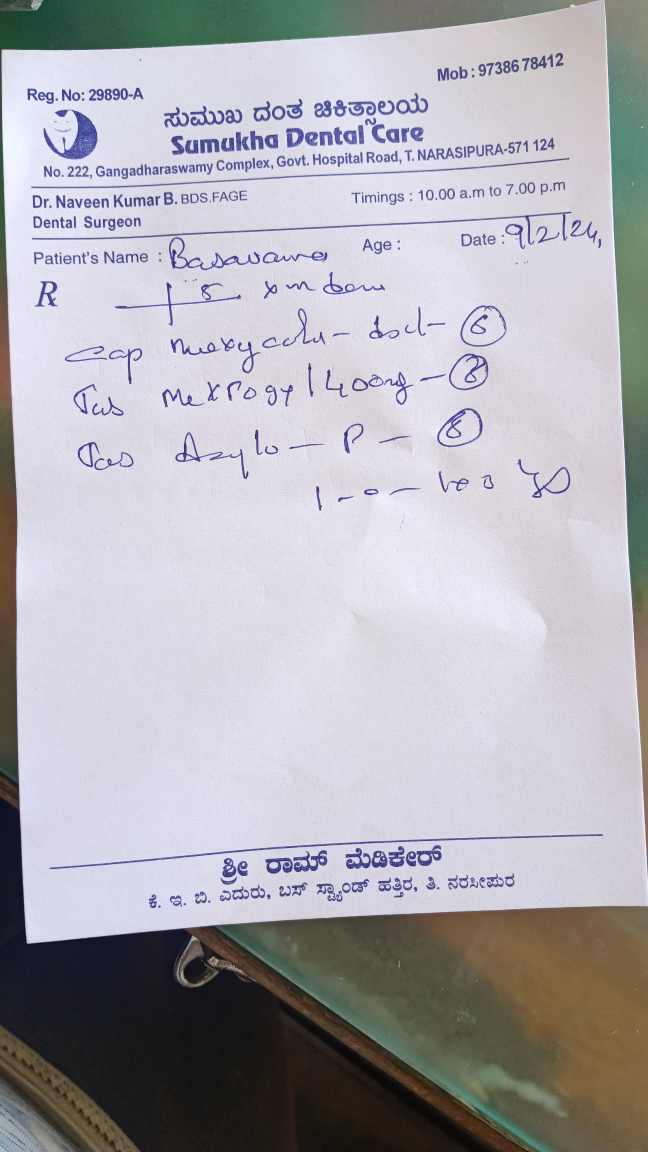 Reg. No: 29890-A
Mob : 97386 78412
ಸುಮುಖ ದಂತ ಚಿಕಿತ್ಸಾಲಯ
Sumukha Dental Care
No. 222, Gangadharaswamy Complex, Govt. Hospital Road, T. NARASIPURA-571 124
Dr. Naveen Kumar B. BDS.FAGE
Timings : 10.00 a.m to 7.00 p.m
Dental Surgeon
Patient's Name :
Age :
Date : 9/2/24,
R
5
Cap
Tab Metrogyl 400mg - 8
Tab Azylo - P -
1 - 0 -
ಶ್ರೀ ರಾಮ್ ಮೆಡಿಕೇರ್
ಕೆ. ಇ. ಬಿ. ಎದುರು, ಬಸ್ ಸ್ಟ್ಯಾಂಡ್ ಹತ್ತಿರ, ತಿ. ನರಸೀಪುರ